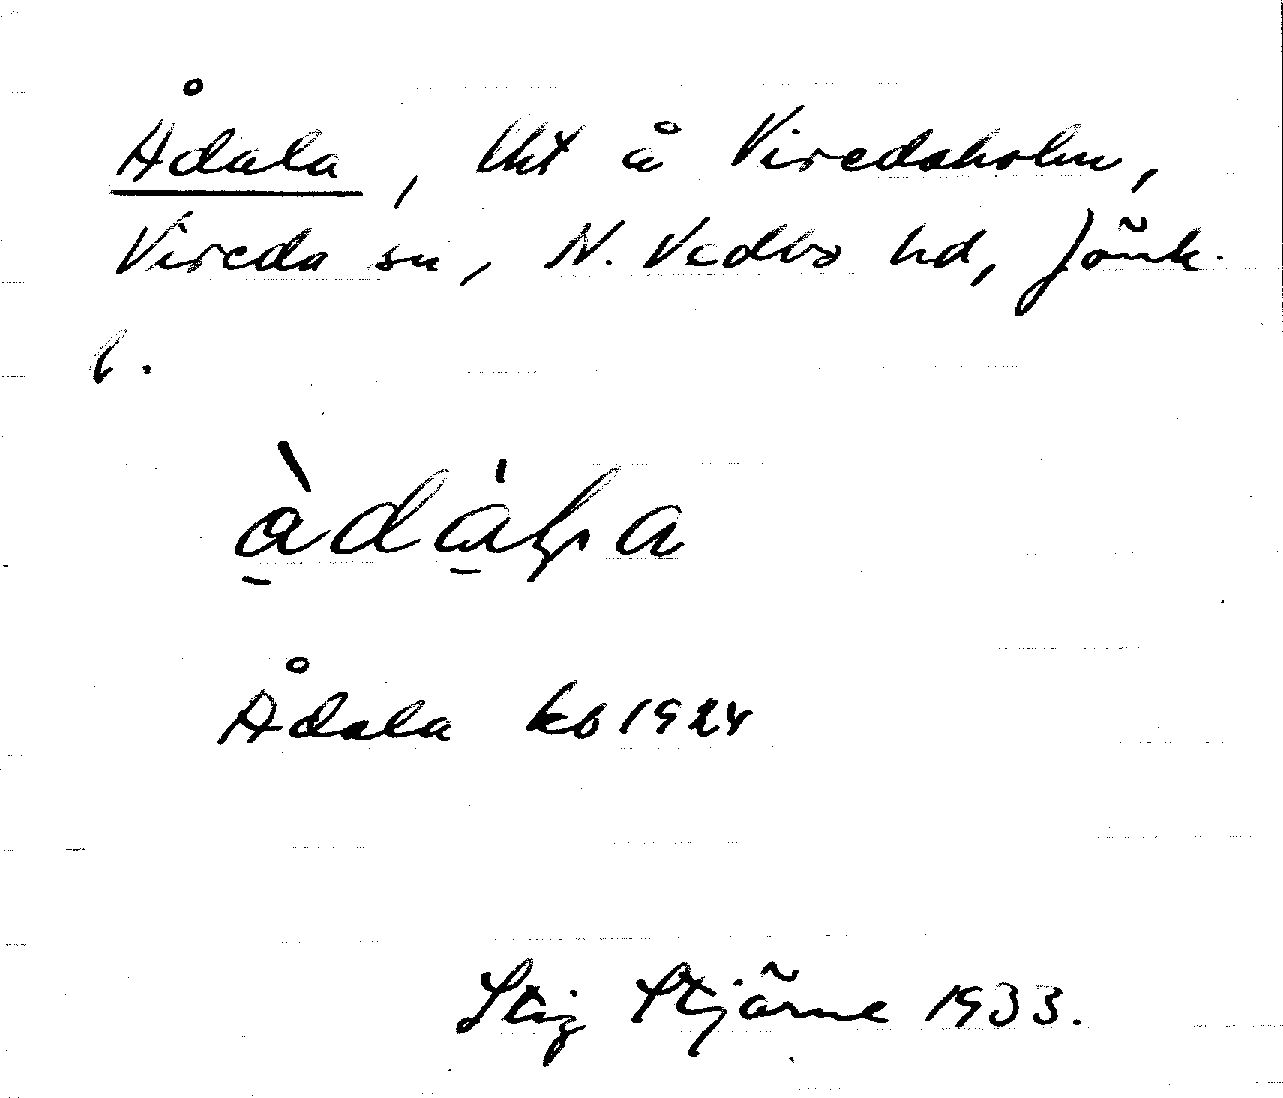 Ådala, lht å Viredaholm,
Vireda sn, N. Vedbo hd, Jönk.
l.
Ådala kb 1924
Stig Stjärne 1933.